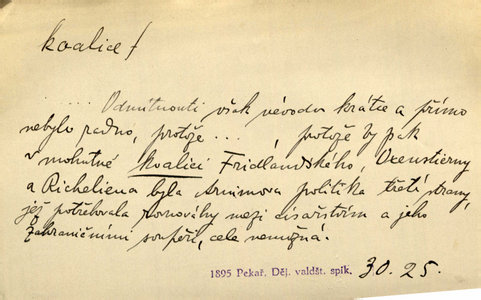 koalice f
.... Odmítnouti však vévodu krátce a přímo
nebylo radno, protože ... , protože by pak
v mohutné koalici Fridlandského, Oxenstierny
a Richeliena byla Arnimova politika třetí strany,
jež potřebovala rovnováhy mezi císařstvím a jeho
zahraničními soupeři, cele nemožná.
1895 Pekař. Děj. valdšt. spik. 30. 25.